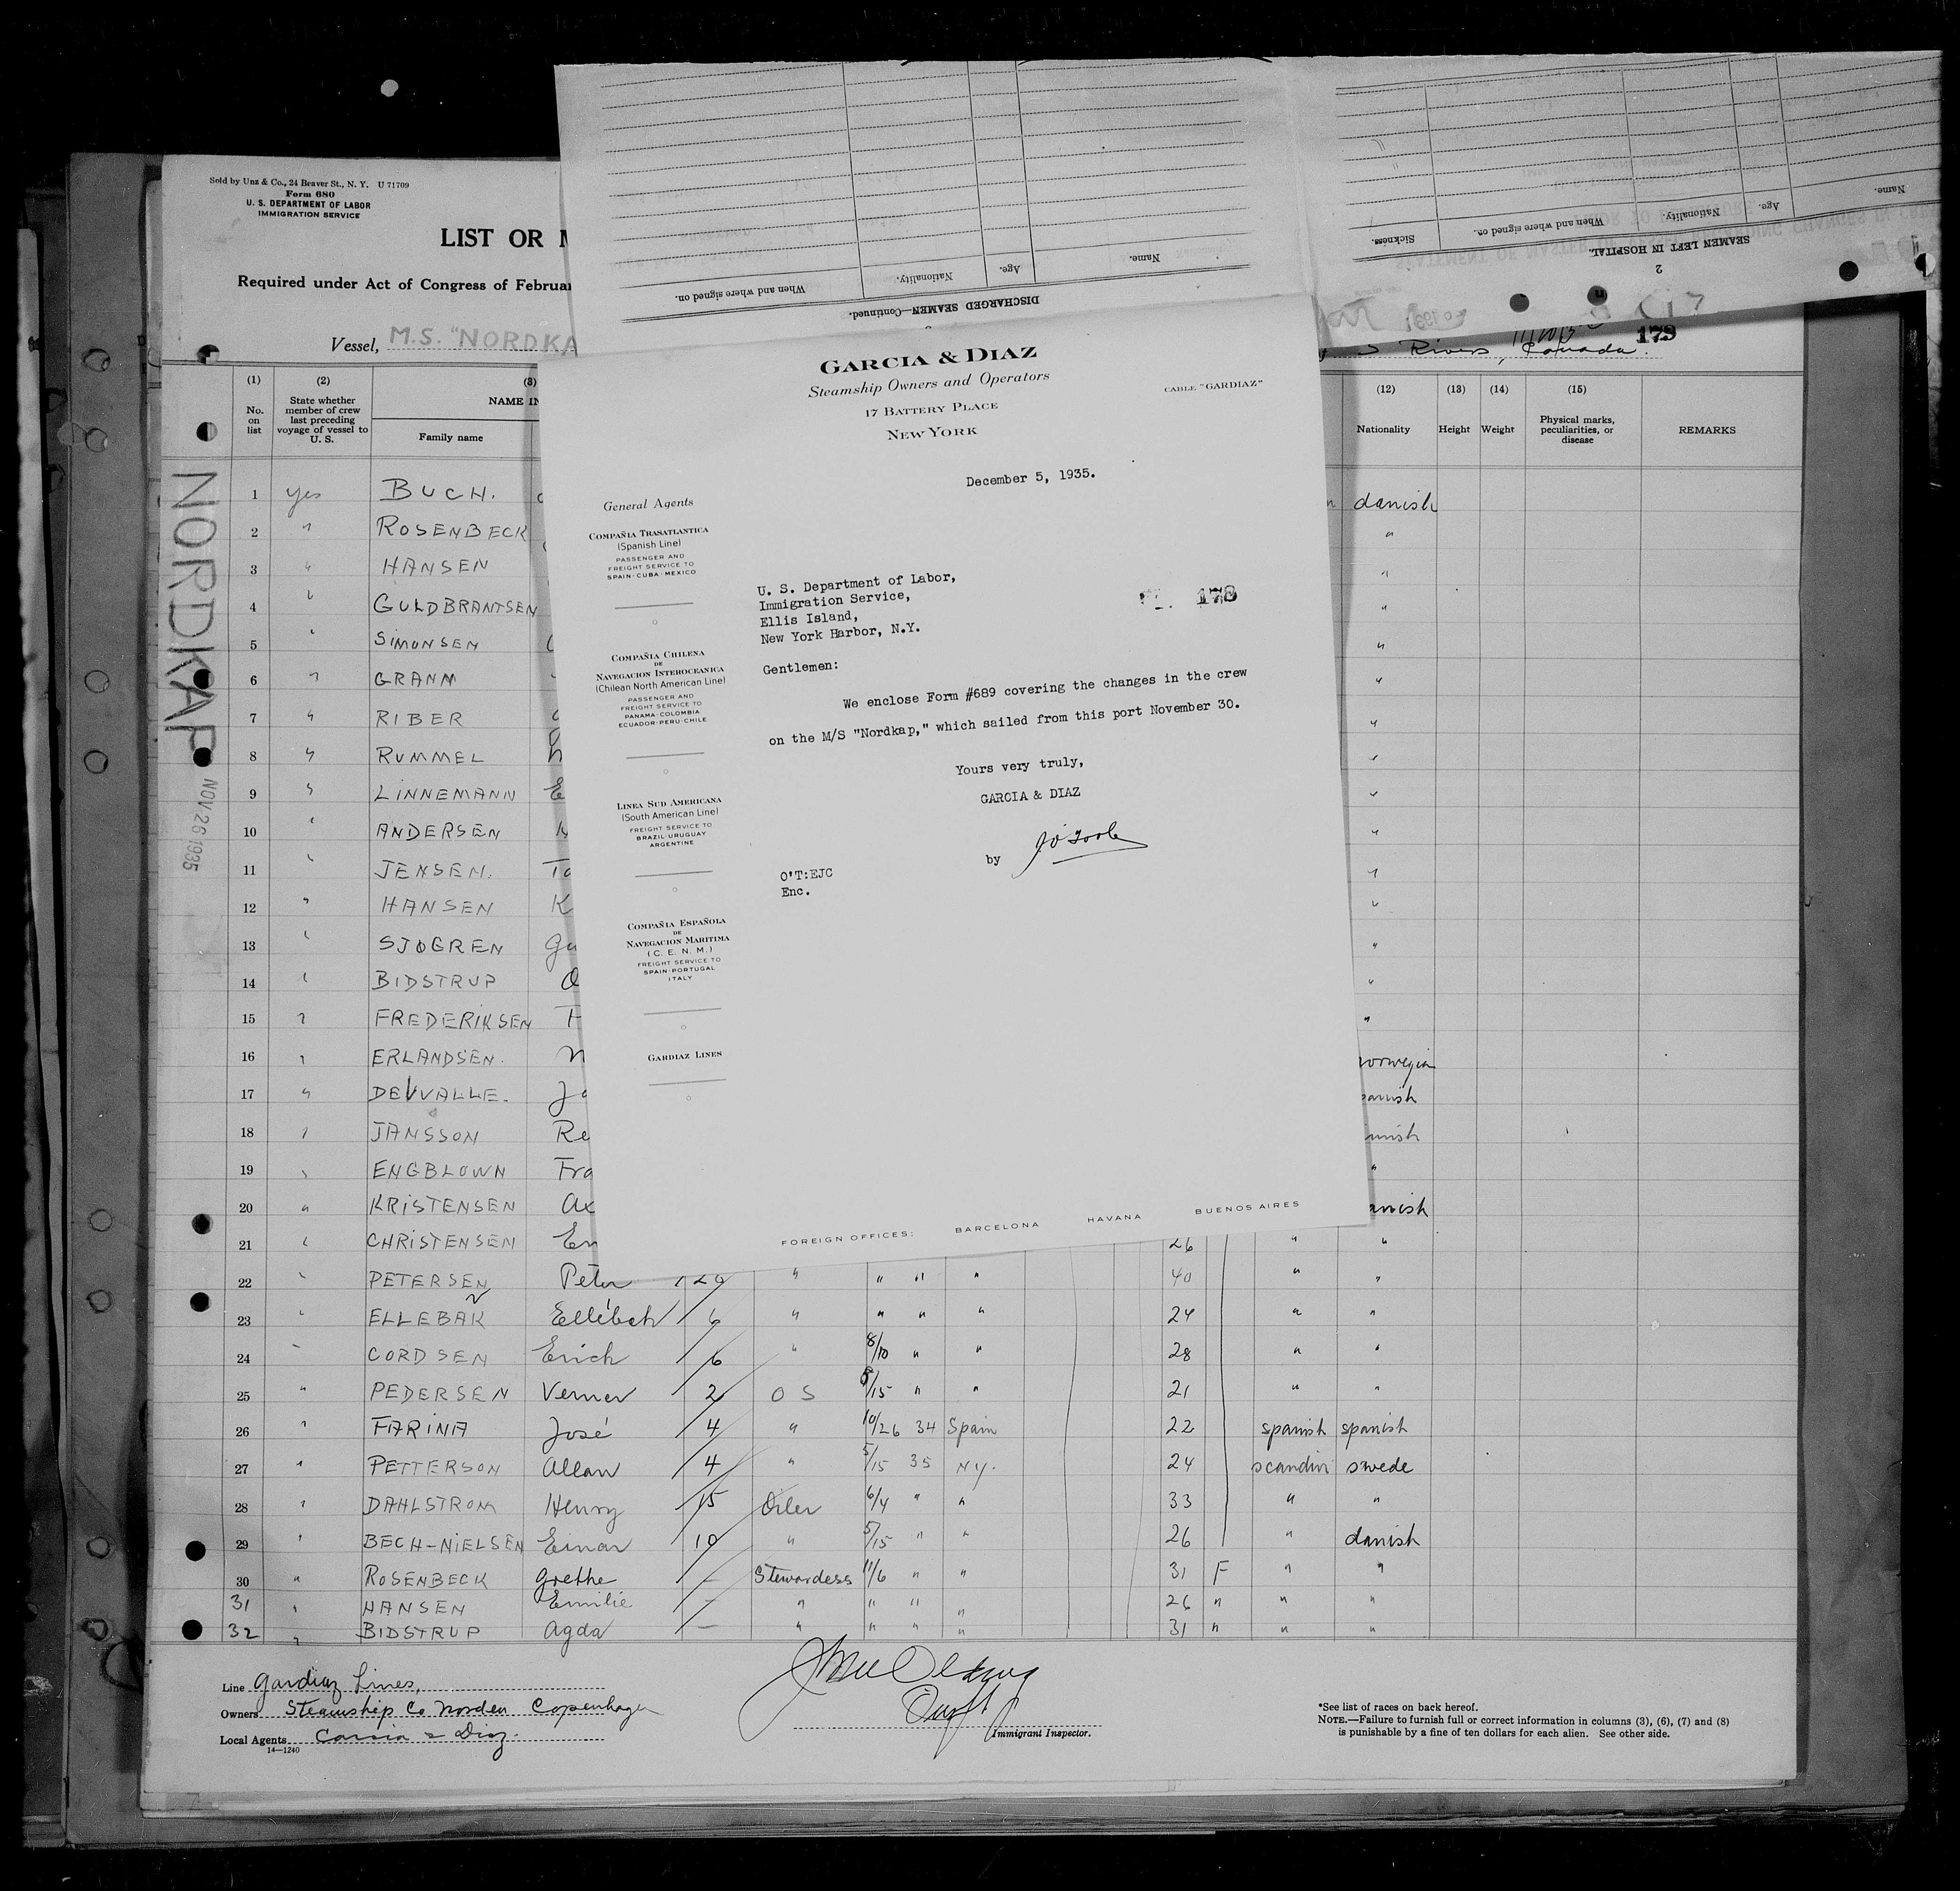 Sold by Unz & Co., 24 Beaver St., N. Y. U 71709
Form 680
U. S. DEPARTMENT OF LABOR
IMMIGRATION SERVICE
LIST OR
Required under Act of Congress of Februar
Vessel, M.S. "NORDKA
Rivers, Canada. 179
DISCHARGED SEAMEN—Continued.
Name. Age. Nationality. When and where signed on.
2
SEAMEN LEFT IN HOSPITAL
Name. Age. Nationality. When and where signed on. Sickness.
GARCIA & DIAZ
Steamship Owners and Operators
17 BATTERY PLACE
NEW YORK
CABLE "GARDIAZ"
December 5, 1935.
General Agents
COMPAÑIA TRASATLANTICA
(Spanish Line)
PASSENGER AND
FREIGHT SERVICE TO
SPAIN·CUBA·MEXICO
COMPAÑIA CHILENA
DE
NAVEGACION INTEROCEANICA
(Chilean North American Line)
PASSENGER AND
FREIGHT SERVICE TO
PANAMA·COLOMBIA
ECUADOR·PERU·CHILE
LINEA SUD AMERICANA
(South American Line)
FREIGHT SERVICE TO
BRAZIL·URUGUAY
ARGENTINE
COMPAÑIA ESPAÑOLA
DE
NAVEGACION MARITIMA
(C. E. N. M.)
FREIGHT SERVICE TO
SPAIN·PORTUGAL
ITALY
GARDIAZ LINES
U. S. Department of Labor,
Immigration Service,
Ellis Island,
New York Harbor, N.Y.
178
Gentlemen:
We enclose Form #689 covering the changes in the crew
on the M/S "Nordkap," which sailed from this port November 30.
Yours very truly,
GARCIA & DIAZ
by
O'T:EJC
Enc.
FOREIGN OFFICES: BARCELONA HAVANA BUENOS AIRES
NORDKAP
NOV 26 1935
(1) (2) (3) (12) (13) (14) (15)
No. on list
State whether member of crew last preceding voyage of vessel to U. S.
NAME IN
Family name
Nationality Height Weight
Physical marks, peculiarities, or disease
REMARKS
1 yes BUCH. danish
2 " ROSENBECK "
3 " HANSEN "
4 " GULDBRANTSEN "
5 " SIMONSEN "
6 " GRANM "
7 " RIBER "
8 " RUMMEL "
9 " LINNEMANN "
10 " ANDERSEN "
11 " JENSEN. "
12 " HANSEN K "
13 " SJØGREN "
14 " BIDSTRUP "
15 " FREDERIKSEN "
16 " ERLANDSEN. norwegian
17 " DEVVALLE. panish
18 " JANSSON Re
19 " ENGBLOWN Fra "
20 " KRISTENSEN Ax danish
21 " CHRISTENSEN 26 " "
22 " PETERSEN Peter 20 " " " " 40 " "
23 " ELLEBAK 6 " " " " 24 " "
24 " CORDSEN Erich 6 " 8/10 " " 28 " "
25 " PEDERSEN Verner 2 O S 8/15 " " 21 " "
26 " FARINA José 4 " 10/26 34 Spain 22 spanish spanish
27 " PETTERSON Allan 4 " 5/15 35 NY. 24 scandin swede
28 " DAHLSTROM Henry 15 Oiler 6/4 " " 33 " "
29 " BECH-NIELSEN Einar 10 " 5/15 " " 26 " danish
30 " ROSENBECK Grethe — Stewardess 11/6 " " 31 F " "
31 " HANSEN Emilie — " " " " 26 " " "
32 " BIDSTRUP Agda — " " " " 31 " " "
Line Gardiaz Lines,
Owners Steamship Co Norden Copenhagen
Local Agents Garcia & Diaz.
14—1240
Immigrant Inspector.
*See list of races on back hereof.
NOTE.—Failure to furnish full or correct information in columns (3), (6), (7) and (8)
is punishable by a fine of ten dollars for each alien. See other side.